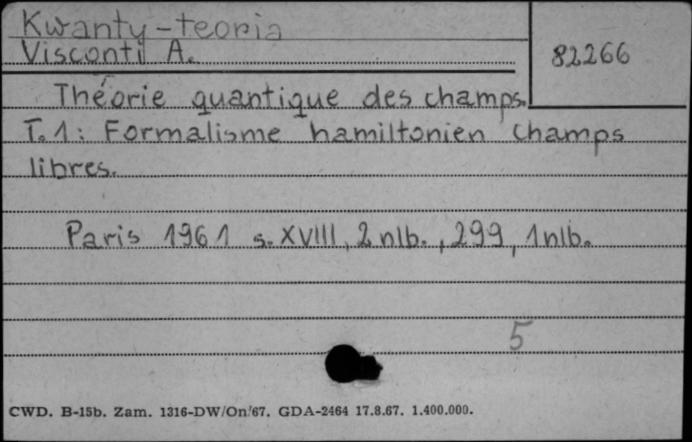 Kwanty-teoria
Visconti A.
82266
Théorie quantique des champs.
T. 1: Formalisme hamiltonien Champs
libres.
Paris 1961 s. XVIII, 2 nlb., 299, 1 nlb.
5
CWD. B-15b. Zam. 1316-DW/On/67. GDA-2464 17.8.67. 1.400.000.